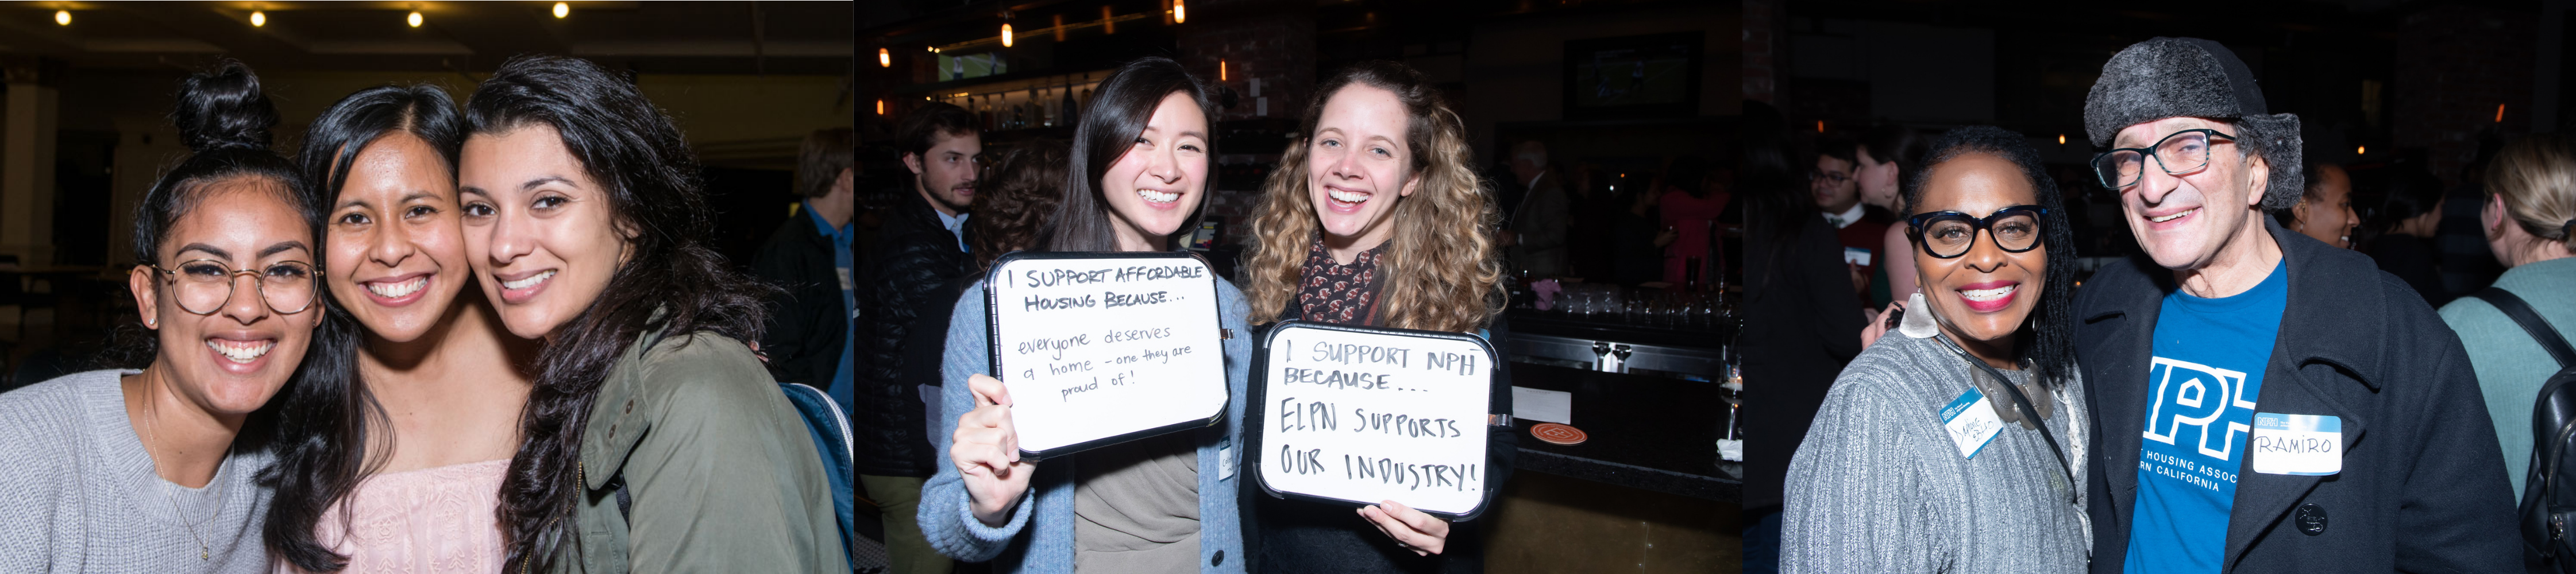 I SUPPORT AFFORDABLE
HOUSING BECAUSE...
everyone deserves
a home - one they are
proud of!
I SUPPORT NPH
BECAUSE...
ELPN SUPPORTS
OUR INDUSTRY!
NPH
HOUSING ASSOC
RN CALIFORNIA
RAMIRO